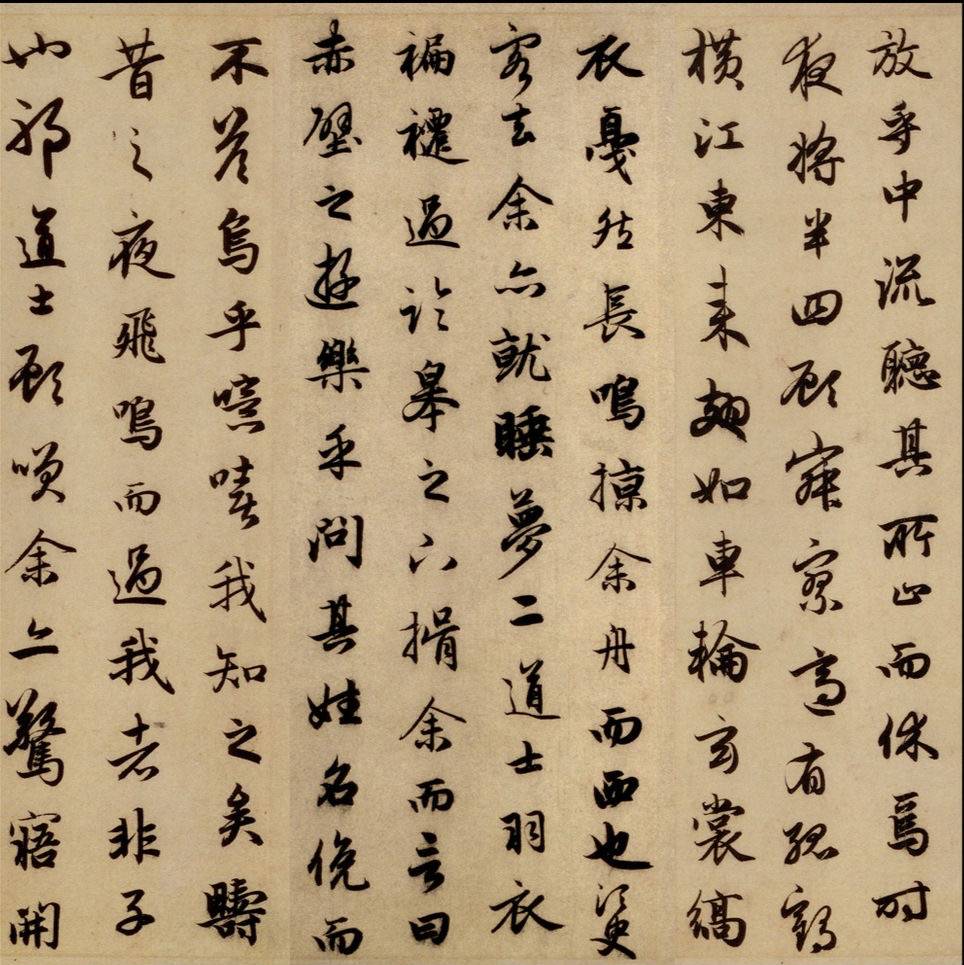 放乎中流聽其所止而休焉時
夜將半四顧寂寥適有孤鶴
橫江東来翅如車輪玄裳縞
衣戛然長鳴掠余舟而西也須臾
客去余亦就睡夢二道士羽衣
褊褼過臨皋之下揖余而言曰
赤壁之遊樂乎問其姓名俛而
不答烏乎噫嘻我知之矣疇
昔之夜飛鳴而過我者非子
也邪道士顧咲余亦驚寤開